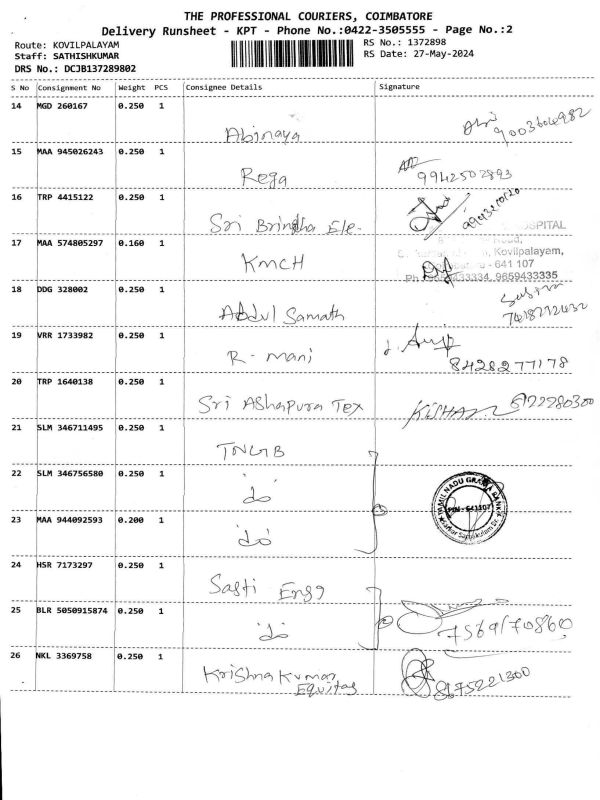 THE PROFESSIONAL COURIERS, COIMBATORE
Delivery Runsheet - KPT - Phone No.:0422-3505555 - Page No.:2
Route: KOVILPALAYAM
Staff: SATHISHKUMAR
DRS No.: DCJB137289802
RS No.: 1372898
RS Date: 27-May-2024
S No Consignment No Weight PCS Consignee Details Signature
14 MGD 260167 0.250 1 Abinaya
15 MAA 945026243 0.250 1 Rega 9942502893
16 TRP 4415122 0.250 1 Sri Brindha Ele-
17 MAA 574805297 0.160 1 KMCH
HOSPITAL
Road,
Kovilpalayam,
- 641 107
Ph 9659433335
18 DDG 328002 0.250 1 Abdul Samath
19 VRR 1733982 0.250 1 R- mani 8428277178
20 TRP 1640138 0.250 1 Sri AShapura Tex KISHAN
21 SLM 346711495 0.250 1 TNGB
22 SLM 346756580 0.250 1 do
TAMIL NADU GRAMA BANK
PIN - 641107
23 MAA 944092593 0.200 1 do
24 HSR 7173297 0.250 1 Sasti Engg
25 BLR 5050915874 0.250 1 do
26 NKL 3369758 0.250 1 Krishna Kumar
Equitas 8175221300